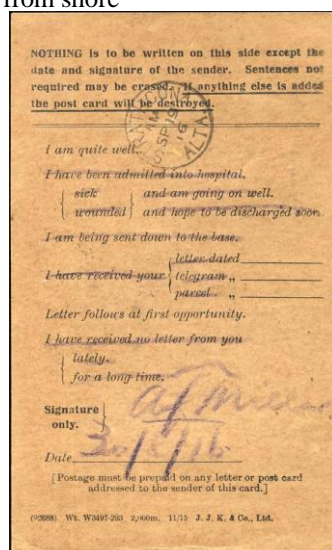 from shore
NOTHING is to be written on this side except the
date and signature of the sender. Sentences not
required may be erased. If anything else is added
the post card will be destroyed.
AM
SP 19
16
ALTA
I am quite well.
I have been admitted into hospital.
sick and am going on well.
wounded and hope to be discharged soon
I am being sent down to the base.
letter dated
I have received your telegram „
parcel „
Letter follows at first opportunity.
I have received no letter from you
lately.
for a long time.
Signature
only.
Date
[Postage must be prepaid on any letter or post card
addressed to the sender of this card.]
(92688) Wt. W3497-293 2,000m. 11/15 J. J. K. & Co., Ltd.